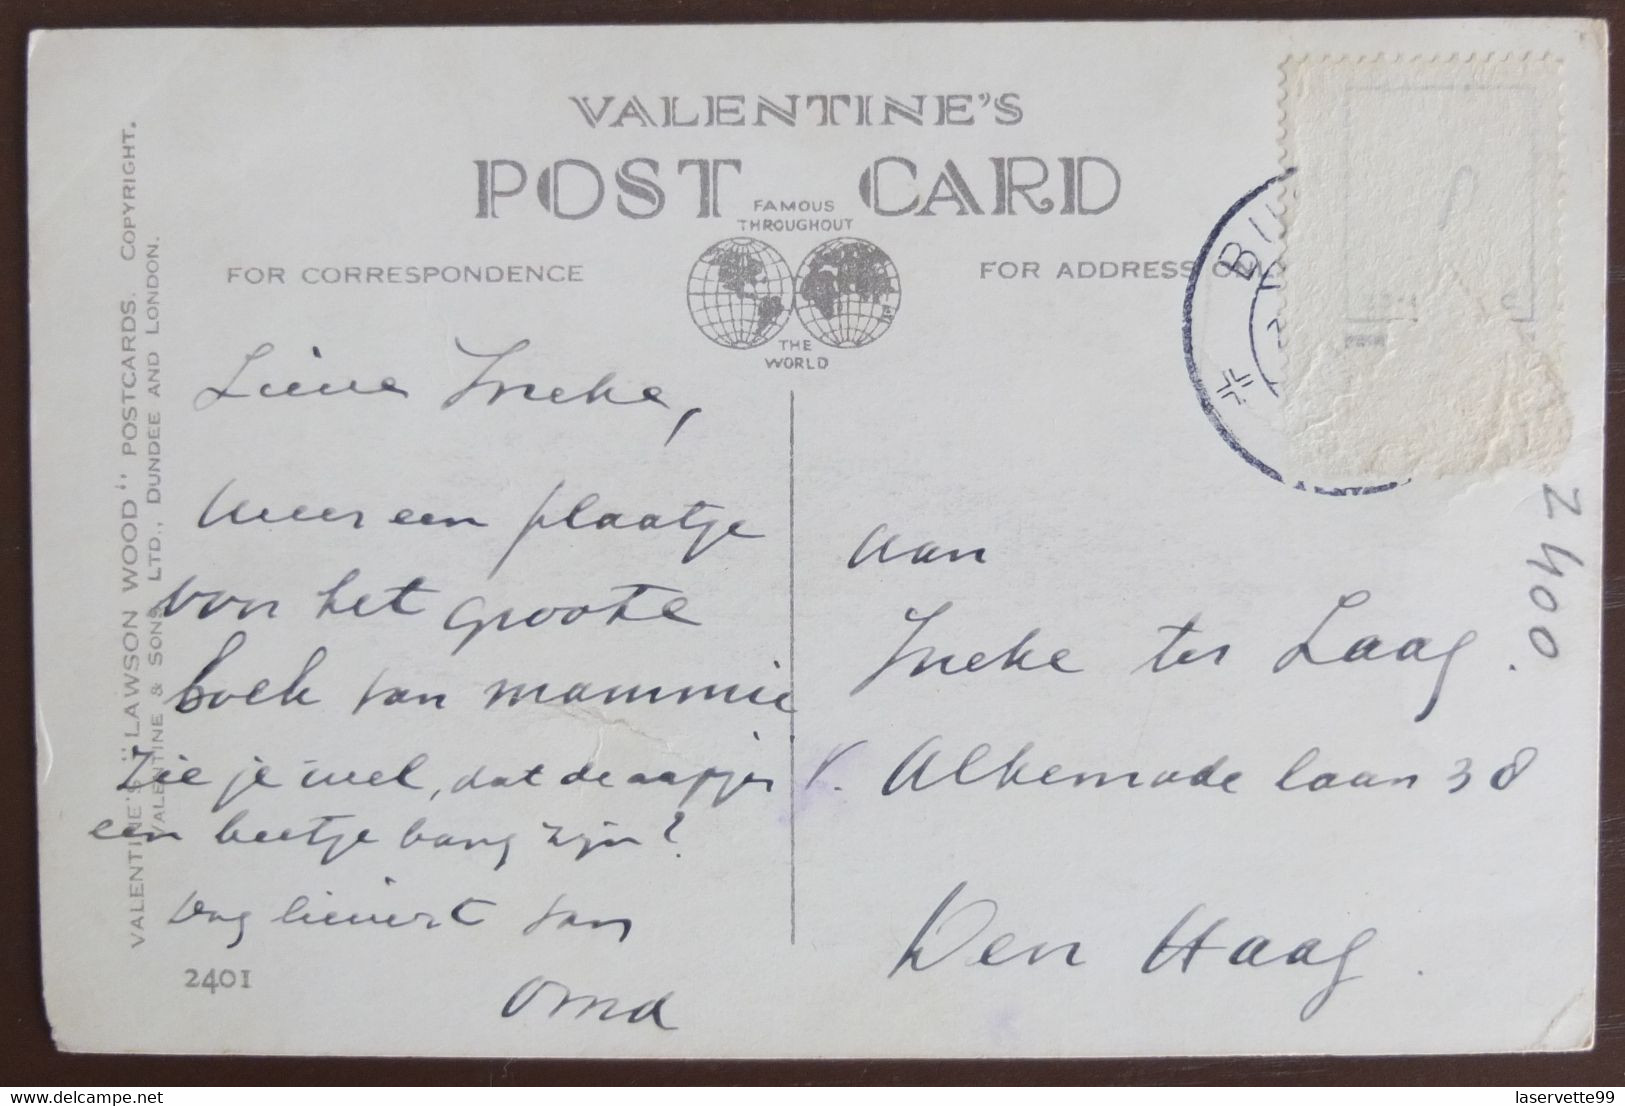 VALENTINE'S
POST CARD
FAMOUS
THROUGHOUT
THE
WORLD
FOR CORRESPONDENCE
FOR ADDRESS ONLY
VALENTINE'S "LAWSON WOOD" POSTCARDS. COPYRIGHT.
VALENTINE & SONS, LTD., DUNDEE AND LONDON.
Lieve Ineke,
Weer een plaatje
voor het groote
boek van mammie
Zie je wel, dat de aapjes
een beetje bang zijn?
Dag lieverd van
Oma
2401
aan
Ineke ter Laag.
v. Alkemade laan 38
Den Haag.
2400
delcampe.net
laservette99